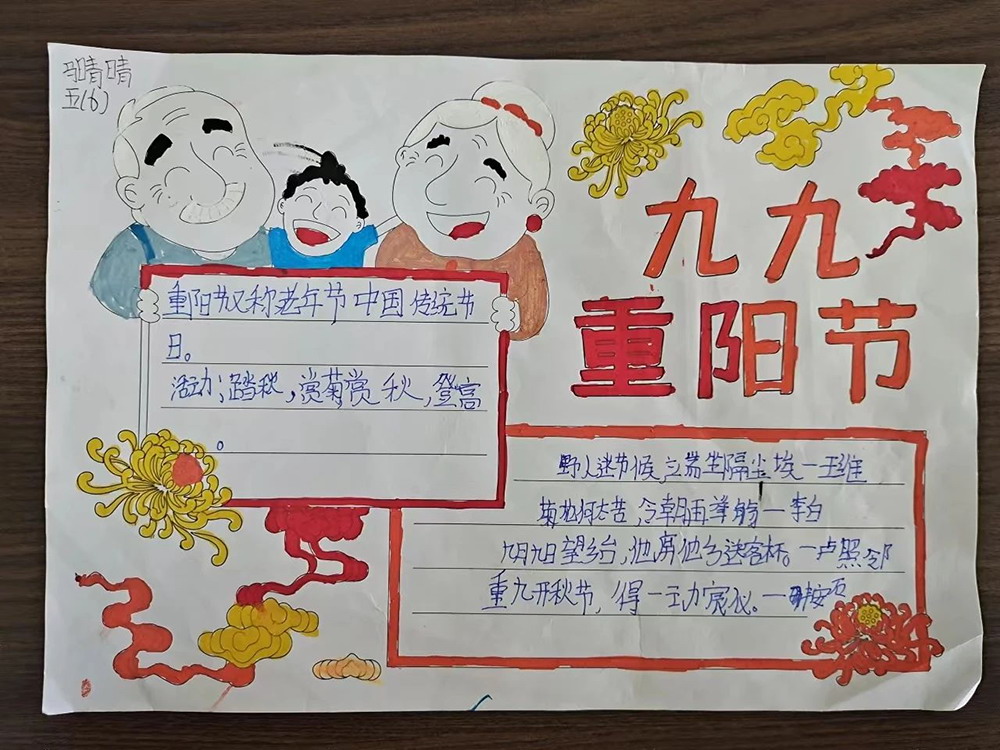 晴晴
五(6)
九九
重阳节
重阳节又称老年节中国传统节
日。
活动;踏秋,赏菊赏秋,登高
。
野人迷节候,端坐隔尘埃一王维
菊花何太苦,今朝再一李白
九月九日望乡台,他席他乡送客杯。一卢照邻
重九开秋节,得一动宸仪。一安石